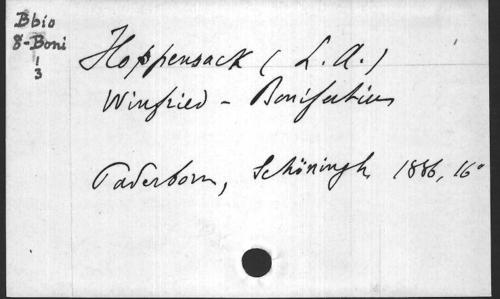 Bbio
8-Boni
1
3
Hoppensack (L. A.)
Winfried - Bonifatius
Paderborn, Schöningh, 1886, 16°